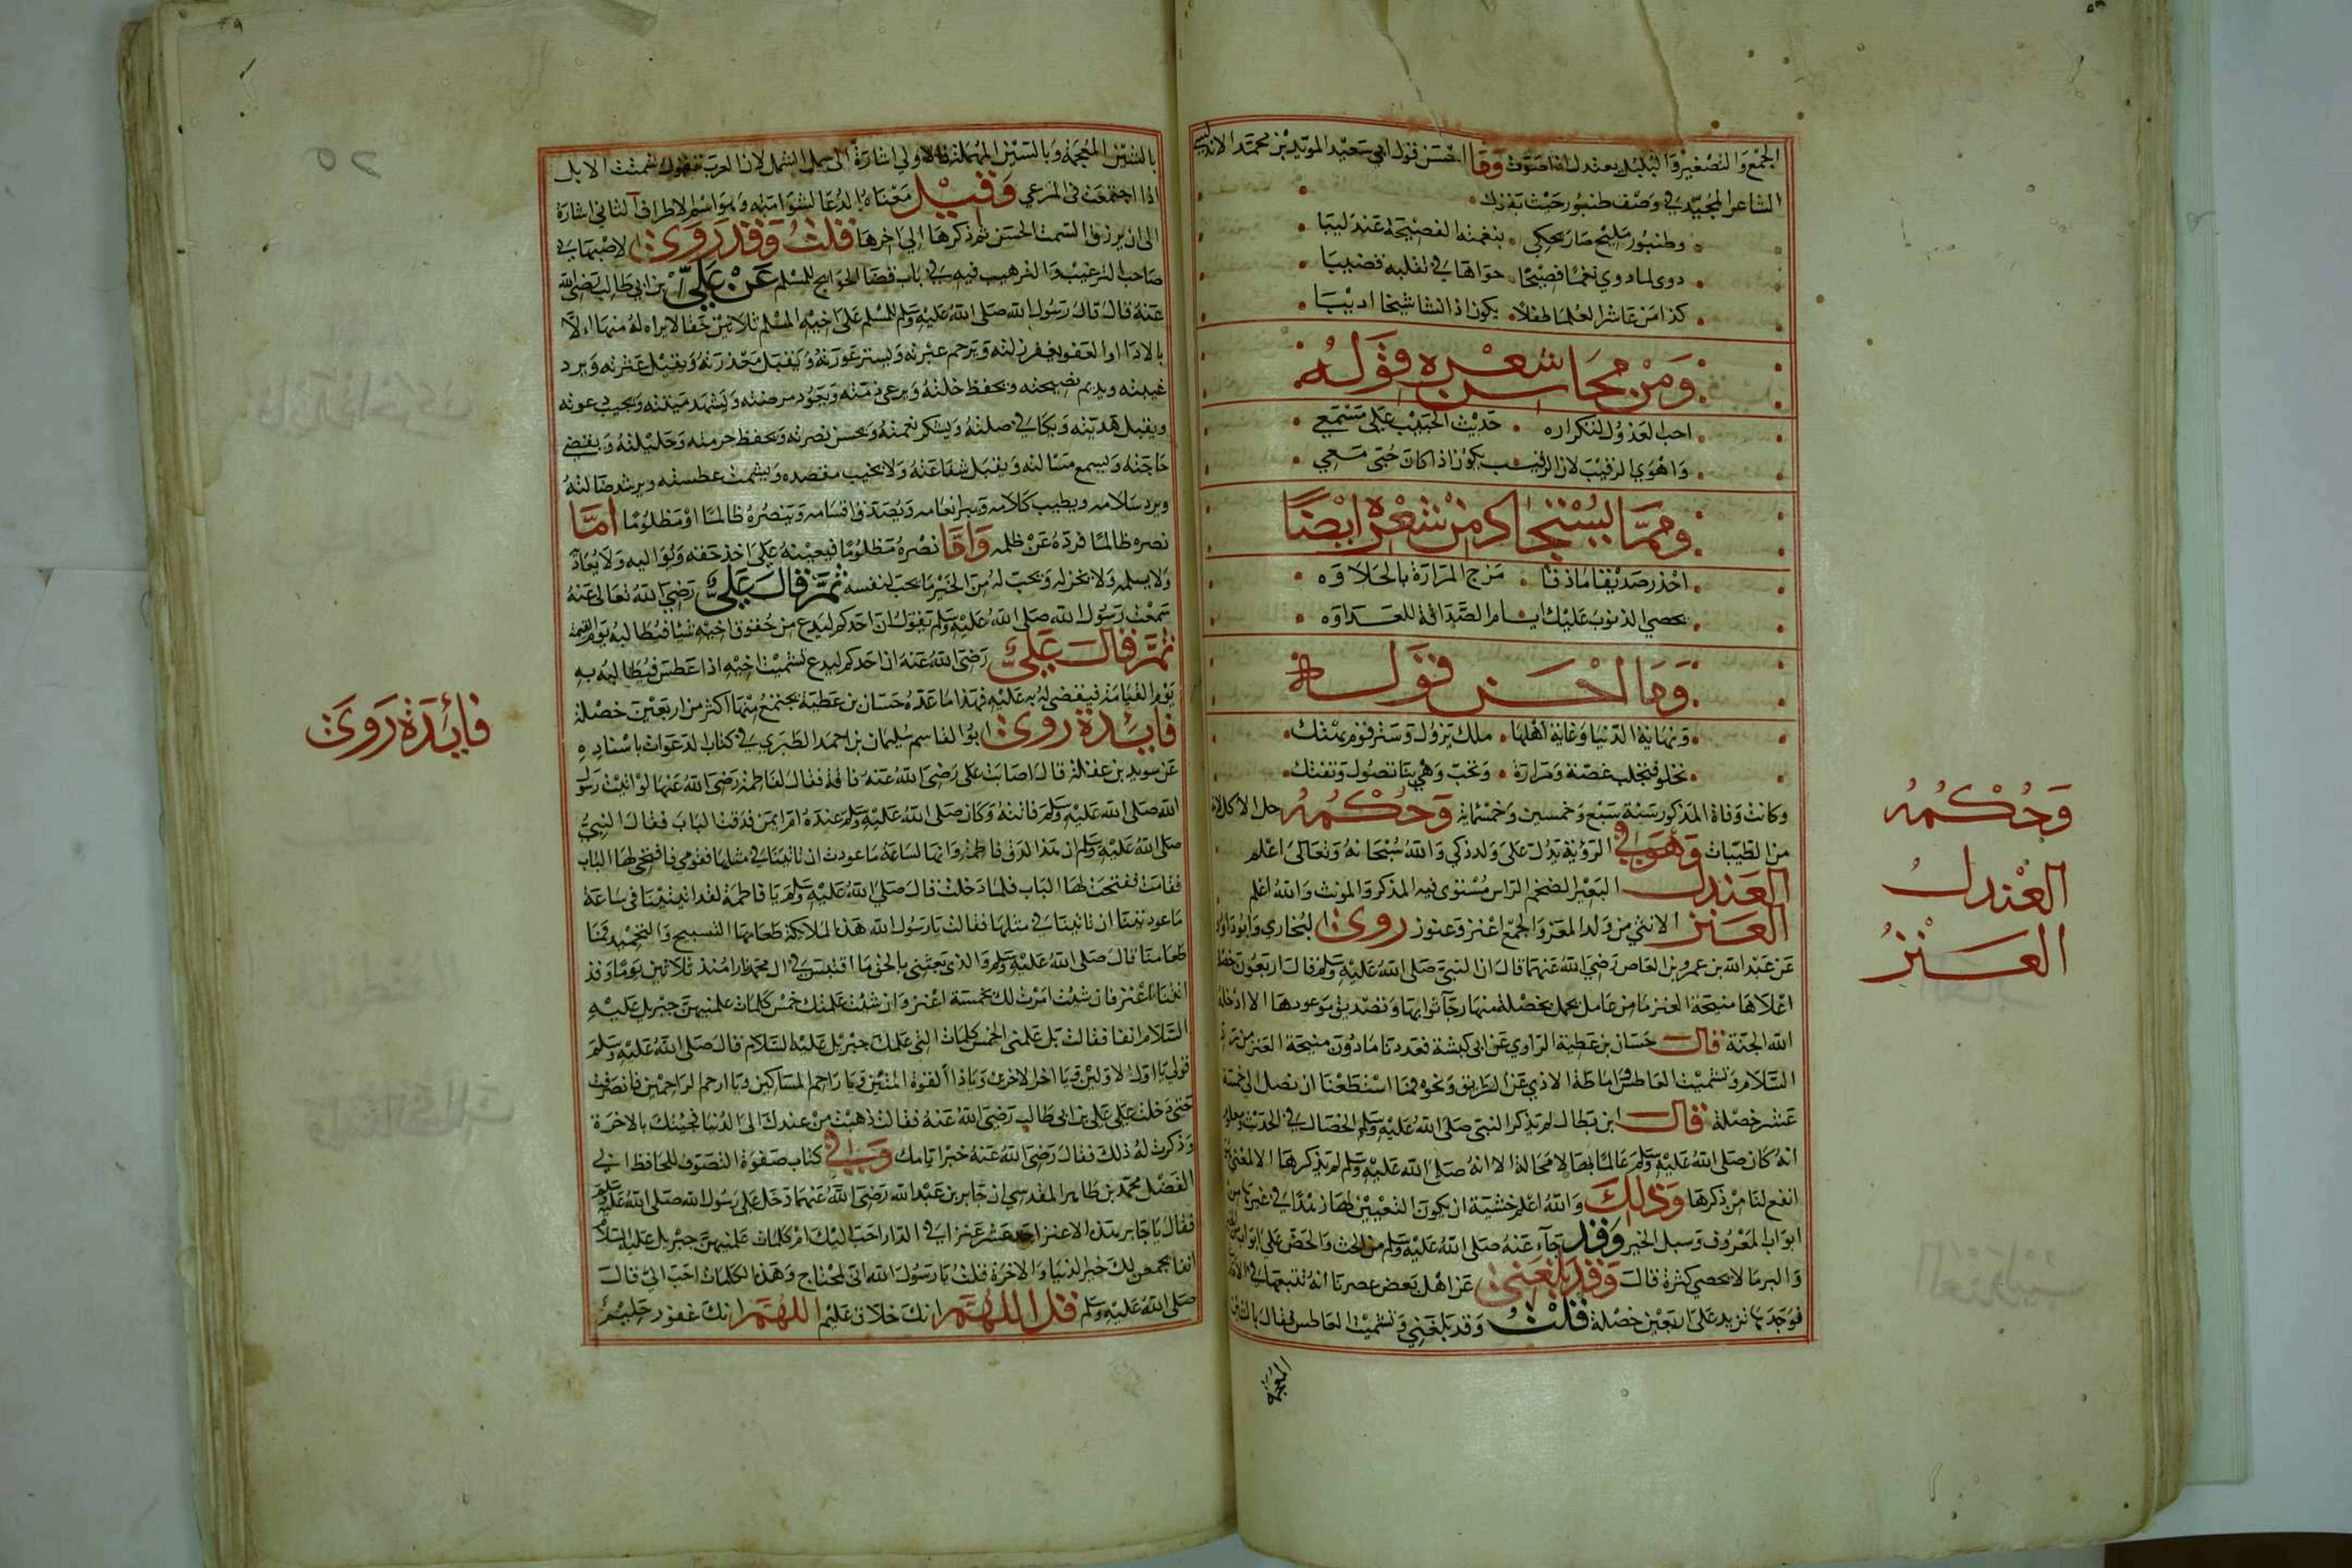 الجمع والتصغير والبلبل يعندل اذا صوت وما احسن قول ابي سعيد المويد بن محمد الاندلسي
الشاعر المجيد في وصف طنبور حيث يقول
وطنبور مليح صار يحكي بنغمته الفصيحة عندليبا
روى لما روي نغما فصيحا حواها في تقلبه قضيبا
كذا من عاشر العلما طفلا يكون اذا نشا شيخا اديبا
ومن محاسن شعره قوله
احب العذول لتكراره حديث الحبيب على مسمعي
واهوى الرقيب لان الرقيب يكون اذا كان حبى معي
ومما يستجاد من شعره ايضا
احذر صديقا ماذقا مزج المرارة بالحلاوه
يحصي الذنوب عليك ايام الصداقة للعداوه
وما احسن قوله
ونهاية الدنيا وغاية اهلها ملك يزول وستر قوم يهتك
تحلو فتجلب غصة ومرارة وتحب وهي بنا تصول وتفتك
وكانت وفاة المذكور سنة سبع وخمسين وخمسماية وحكمه حل الاكل لانه
من الطيبات وهو في الرؤية يدل على ولد ذكي والله سبحانه وتعالى اعلم
العندل البعير الضخم الراس مستوى فيه المذكر والمونث والله اعلم
العنز الانثي من ولد المعز والجمع اعنز وعنوز روى البخاري وابو داود
عن عبد الله بن عمرو بن العاص رضي الله عنهما قال ان النبي صلى الله عليه وسلم قال اربعون خصلة
اعلاها منيحة العنز ما من عامل يعمل بخصلة منها رجآ ثوابها وتصديق موعودها الا ادخله
الله الجنة قال حسان بن عطية الراوي عن ابى كبشة فعددنا ما دون منيحة العنز من رد
السلام وتشميت العاطس واماطة الاذي عن الطريق ونحوه فما استطعنا ان نصل الى خمسة
عشر خصلة قال ابن بطال لم يذكر النبي صلى الله عليه وسلم الخصال في الحديث ومعلوم
انه كان صلى الله عليه وسلم عالما بها لا محالة الا انه صلى الله عليه وسلم لم يذكرها الا لمعني
انفع لنا من ذكرها وذلك والله اعلم خشية ان يكون التعيين لها زهدا في غيرها من
ابواب المعروف وسبل الخير وقد جآء عنه صلى الله عليه وسلم من الحث والحض على ابواب
والبر ما لا يحصي كثرة قال وقد بلغني عن اهل بعض عصرنا انه تتبعها في
فوجدها تزيد على اربعين خصلة قلت وقد بلغني وتشميت العاطس فقال بالشين
المعجمة
وحكمه
العندل
العنز
بالشين المعجمة وبالسين المهملة فالاولى اشارة الى جمل الشمل لان العرب تقول شمتت الابل
اذا اجتمعت في المرعي وقيل معناه الدعا لشوامته وهو اسم لاطراف الثاني اشارة
الى ان يرزق السمت الحسن ثم ذكرها الى اخرها قلت وقد روى الاصبهاني
صاحب الترغيب والترهيب فيه في باب قضا الحوايج للمسلم عن علي بن ابي طالب رضي الله
عنه قال قال رسول الله صلى الله عليه وسلم للمسلم على اخيه المسلم ثلاثين حقا لا براه له منها الا
بالادا او العفو يغفر زلته ويرحم عبرته ويستر عورته ويقبل معذرته ويقيل عثرته ويرد
غيبته ويديم نصيحته ويحفظ خلته ويرعى ذمته ويعود مرضته ويشهد ميتته ويجيب دعوته
ويقبل هديته ويكافي صلته ويشكر نعمته ويحسن نصرته ويحفظ حرمته وحليلته ويقضي
حاجته ويسمع مسالته ويقبل شفاعته ولا يخيب مقصده ويشمت عطسته ويرشد ضالته
ويرد سلامه ويطيب كلامه ويبر انعامه ويصدق اقسامه وينصره ظالما او مظلوما اما
نصره ظالما فرده عن ظلمه واما نصره مظلوما فيعينه على اخذ حقه ويواليه ولا يعاد
ولا يسلمه ولا يخذله ويحب له من الخير ما يحب لنفسه ثم قال علي رضي الله تعالى عنه
سمعت رسول الله صلى الله عليه وسلم يقول ان احدكم ليدع من حقوق اخيه شيا فيطالبه يوم القيمة
ثم قال علي رضى الله عنه ان احدكم ليدع تشميت اخيه اذا عطس فيطالبه به
يوم القيامة فيقضى له به عليه فهذا ما عده حسان بن عطية يجتمع منها اكثر من اربعين خصلة
فايدة روى ابو القاسم سليمان بن احمد الطبري في كتاب الدعوات باسناده
عن سويد بن غفلة قال اصابت على رضى الله عنه فاقة فقال لفاطمة رضى الله عنها لو اتيت رسول
الله صلى الله عليه وسلم فاتته وكان صلى الله عليه وسلم عنده ام ايمن فدقت الباب فقال النبي
صلى الله عليه وسلم ان هذا لدق فاطمة وانها لساعة ما عودت ان تاتينا في مثلها فقومي فافتحى لها الباب
فقامت ففتحت لها الباب فلما دخلت قال صلى الله عليه وسلم يا فاطمة لقد اتيتينا في ساعة
ما عودتينا ان تاتينا في مثلها فقالت يا رسول الله هذه الملايكة طعامها التسبيح والتحميد فما
طعامنا قال صلى الله عليه وسلم والذي بعثني بالحق ما اقتبس في ال محمد نارا منذ ثلاثين يوما وقد
اتتنا اعنز فان شيت امرت لك بخمسة اعنز وان شيت علمتك خمس كلمات علمنيهن جبريل عليه
السلام انفا فقالت بل علمنى الخمس كلمات التي علمك جبريل عليه السلام قال صلى الله عليه وسلم
قولي يا اول الاولين ويا اخر الاخرين ويا ذا القوة المتين ويا راحم المساكين ويا ارحم الراحمين فانصرفت
حتى دخلت على علي بن ابى طالب رضى الله عنه فقالت ذهبت من عندك الى الدنيا فجيتك بالاخرة
وذكرت له ذلك فقال رضى الله عنه خير ايامك وفي كتاب صفوة التصوف للحافظ ابي
الفضل محمد بن طاهر المقدسي ان جابر بن عبد الله رضى الله عنهما دخل على رسول الله صلى الله عليه وسلم
فقال يا جابر هذه الاعنز احد عشر عنزا في الدار احب اليك ام كلمات علمنيهن جبريل عليه السلام
انفا يجمعن لك خير الدنيا والاخرة قلت يا رسول الله اني لمحتاج وهذه الكلمات احب الى قال
صلى الله عليه وسلم قل اللهم انك خلاق عليم اللهم انك غفور حليم
فايدة روى